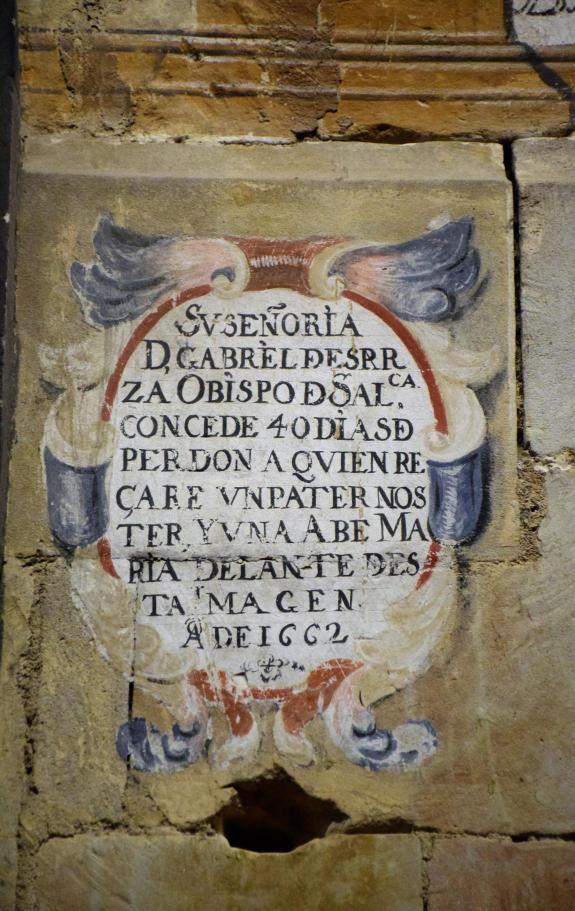 SVSEÑORÌA
D, GABRÈL DESRR
ZA OBÌSPO D S̃ALCA.
CONCEDE 40 DÌAS Đ
PERDON A QVIEN RE
ÇARE VN PATER NOS
TER, Y VNA ABE MA
RÌA DELANTE DES
TA IMAGEN
A DE 1662